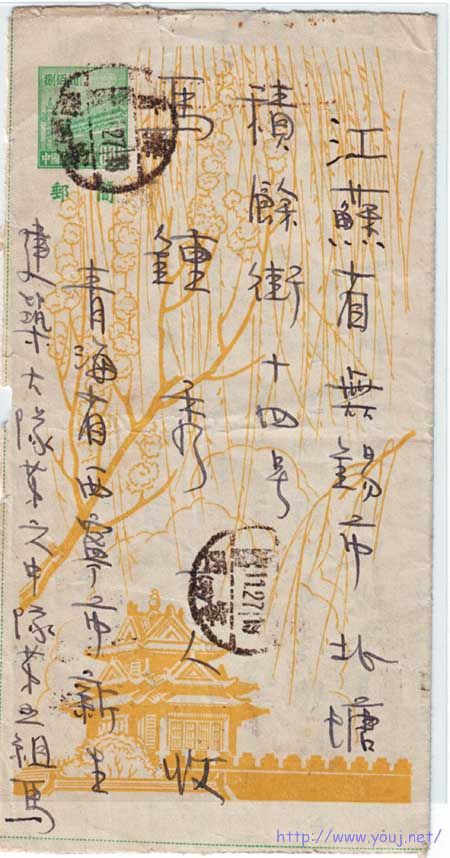 江蘇省無錫市北塘
積餘街十四号
馬鍾秀 人收
青海省西寧市新生
建築大隊第六中隊第五組馬
捌佰圓
郵簡
http://www.youj.net/